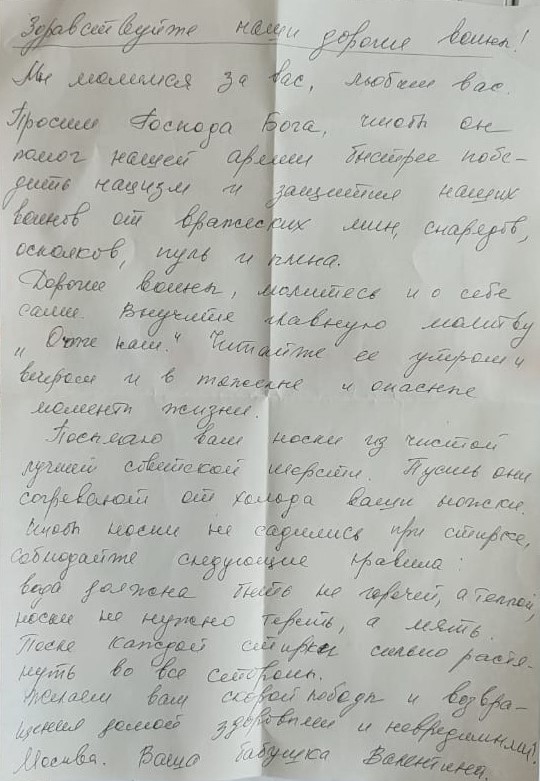 Здравствуйте наши дорогие воины!
Мы молимся за вас, любим вас.
Просим Господа Бога, чтобы он
помог нашей армии быстрее побе-
дить нацизм и защитил наших
воинов от вражеских мин, снарядов,
осколков, пуль и плена.
Дорогие воины, молитесь и о себе
сами. Выучите главную молитву
„Отче наш." Читайте ее утром и
вечером и в тяжелые и опасные
моменты жизни.
Посылаю вам носки из чистой
лучшей советской шерсти. Пусть они
согревают от холода ваши ножки.
Чтобы носки не садились при стирке,
соблюдайте следующие правила:
вода должна быть не горячей, а теплой,
носки не нужно тереть, а мять.
После каждой стирки сильно растя-
нуть во все стороны.
Желаем вам скорой победы и возвра-
щения домой здоровыми и невредимыми!
Москва. Ваша бабушка Валентина